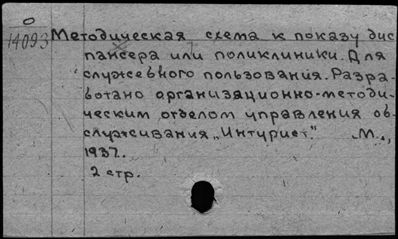 О
14093
Методическая схема к показу дис
пансера или поликлиники. Для
служебного пользования. Разра-
ботано организационно-методи-
ческим отделом управления об-
служивания „Интурист." М.,
1937.
2 стр.